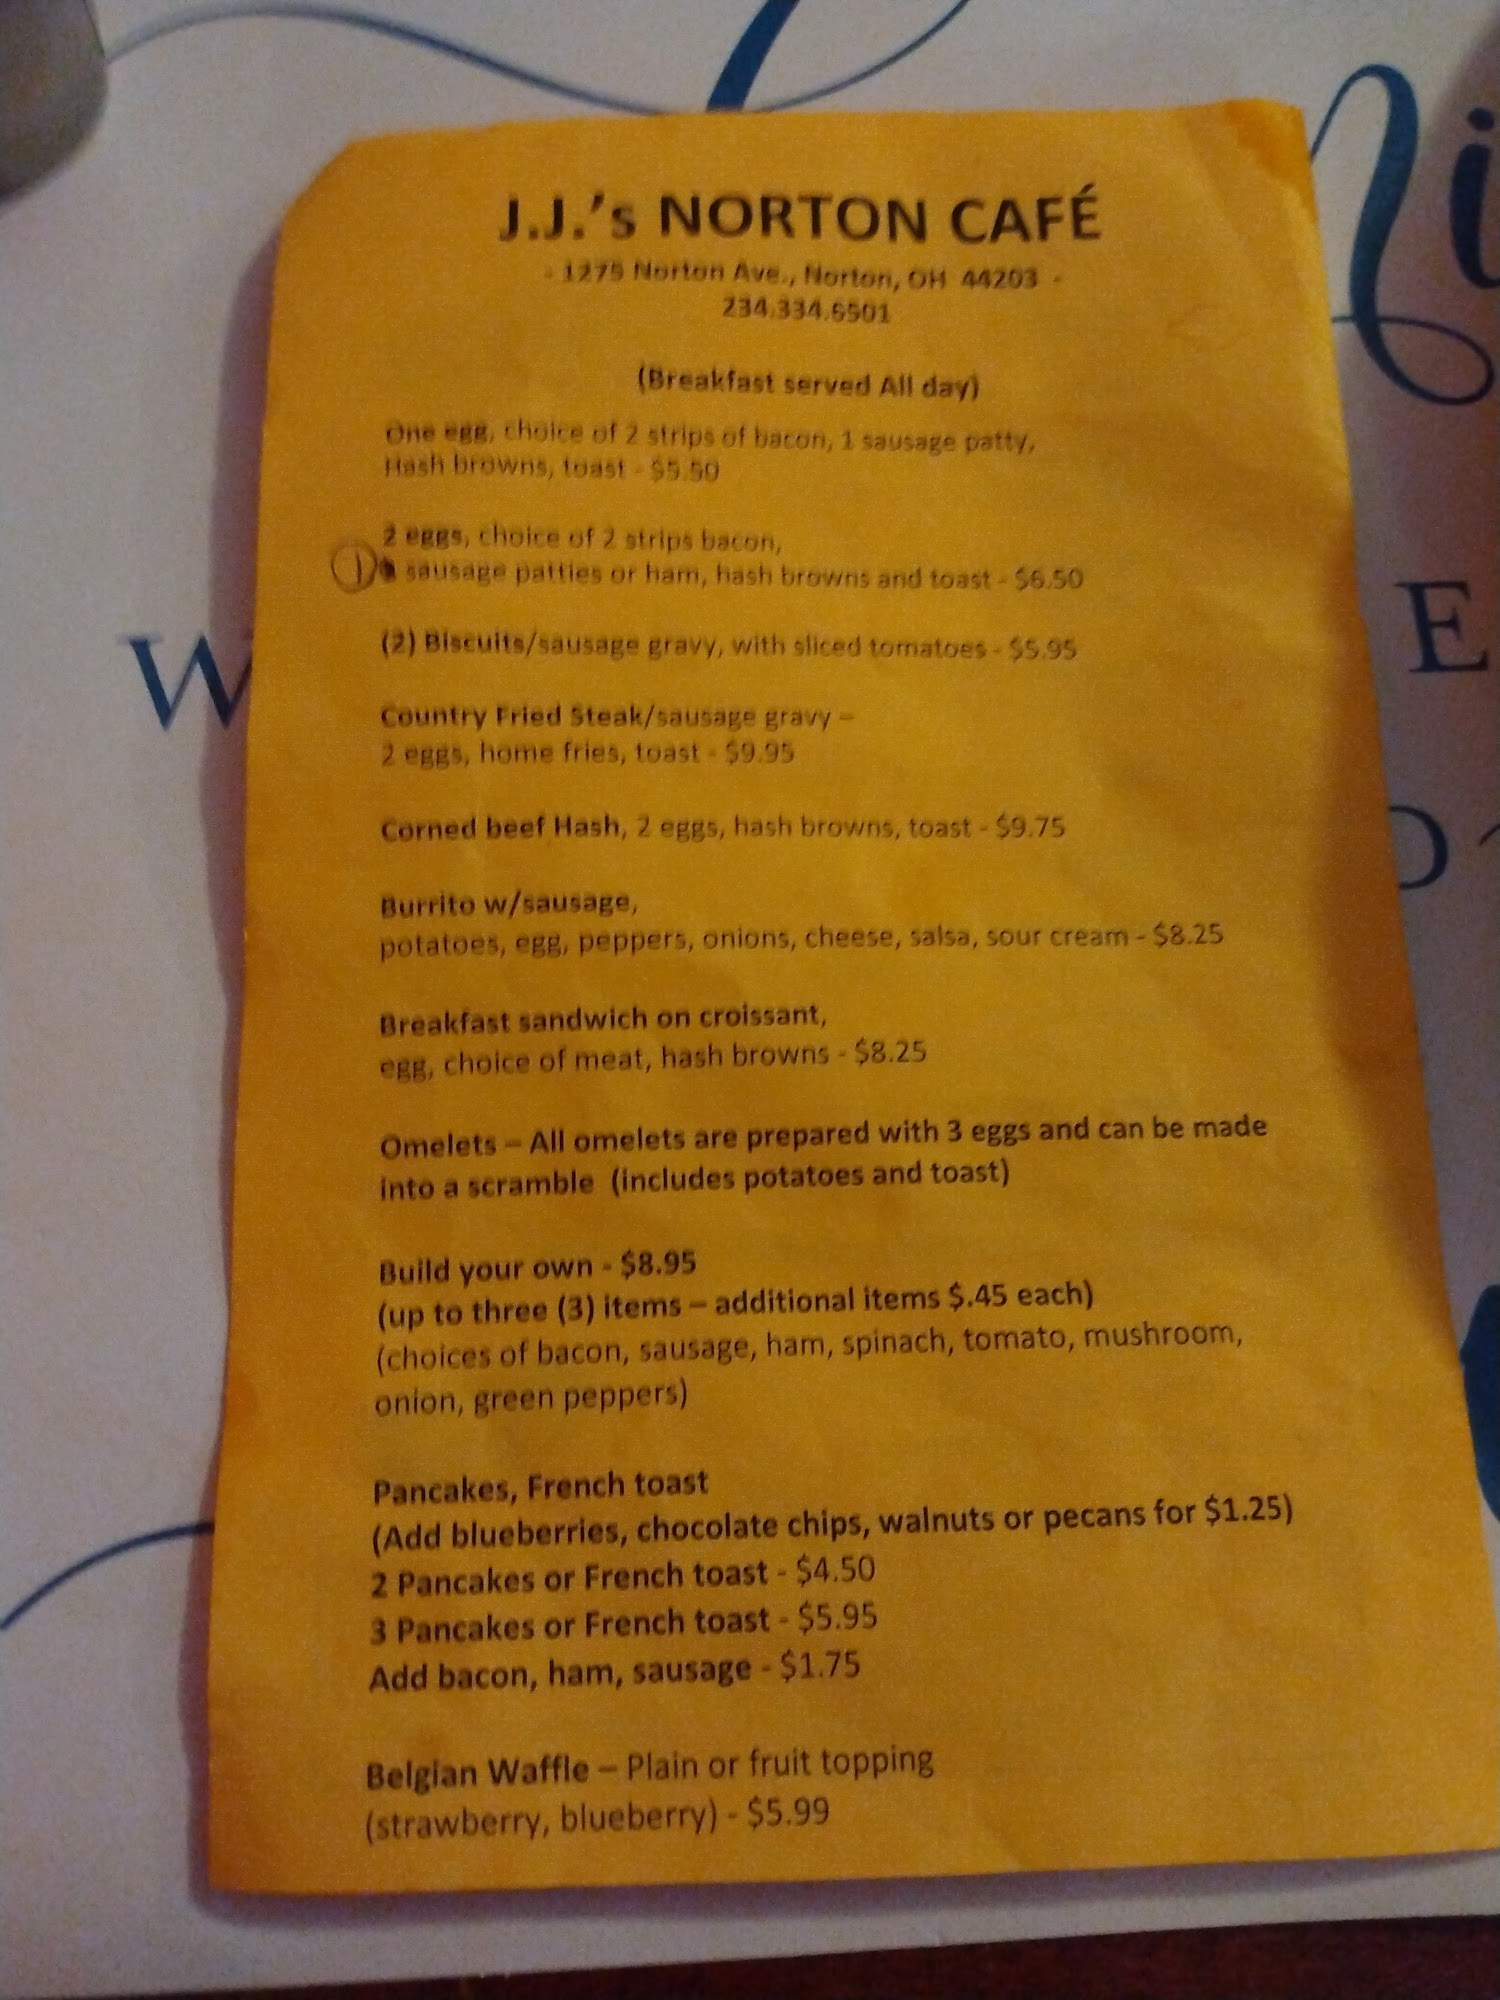 J.J.'s NORTON CAFÉ
- 1275 Norton Ave., Norton, OH 44203 -
234.334.6501
(Breakfast served All day)
One egg, choice of 2 strips of bacon, 1 sausage patty,
Hash browns, toast - $5.50
2 eggs, choice of 2 strips bacon,
1 sausage patties or ham, hash browns and toast - $6.50
(2) Biscuits/sausage gravy, with sliced tomatoes - $5.95
Country Fried Steak/sausage gravy –
2 eggs, home fries, toast - $9.95
Corned beef Hash, 2 eggs, hash browns, toast - $9.75
Burrito w/sausage,
potatoes, egg, peppers, onions, cheese, salsa, sour cream - $8.25
Breakfast sandwich on croissant,
egg, choice of meat, hash browns - $8.25
Omelets – All omelets are prepared with 3 eggs and can be made
into a scramble (includes potatoes and toast)
Build your own - $8.95
(up to three (3) items – additional items $.45 each)
(choices of bacon, sausage, ham, spinach, tomato, mushroom,
onion, green peppers)
Pancakes, French toast
(Add blueberries, chocolate chips, walnuts or pecans for $1.25)
2 Pancakes or French toast - $4.50
3 Pancakes or French toast - $5.95
Add bacon, ham, sausage - $1.75
Belgian Waffle – Plain or fruit topping
(strawberry, blueberry) - $5.99